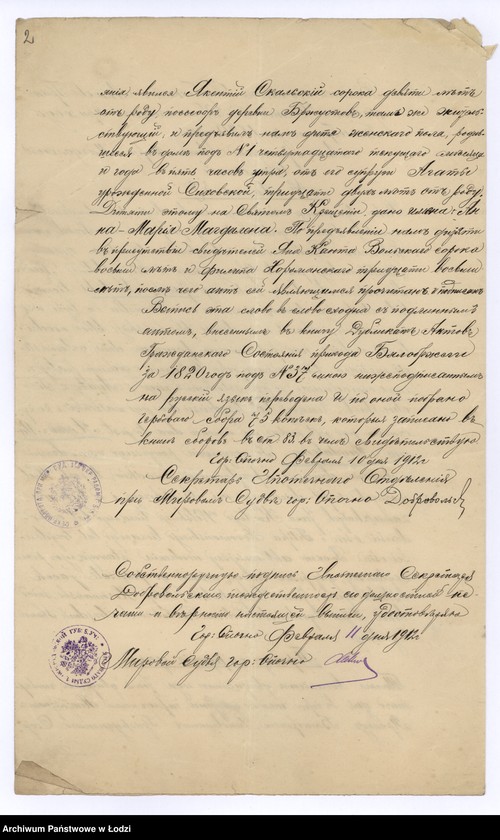 2
янія, явился Якентій Скальскій сорока девяти лѣтъ
отъ роду поссесоръ деревни Брудзовъ, тамъ же житель-
ствующій, и предъявилъ намъ дитя женскаго пола, родив-
шееся въ домѣ подъ №1 четырнадцатаго текущаго мѣсяца
и года въ пять часовъ утра, отъ его супруги Агаты
урожденной тридцати двухъ лѣтъ отъ роду.
Дитяти этому на Святомъ Крещеніи дано имена: Ан-
на-Марія Магдалина. По предъявленіи намъ дитяти
въ присутствіи свидѣтелей Яна Канта Вольскаго сорока
восьми лѣтъ и Филиппа тридцати восьми
лѣтъ, послѣ чего актъ сей являющимся прочитанъ и подписанъ
Выпись эта слово въ слово сходна съ подлиннымъ
актомъ, внесеннымъ въ книгу Дубликатъ Актовъ
Гражданскаго Состоянія прихода
за 1820 годъ подъ №37 мною нижеподписавшимъ
на русскій языкъ переведена и по оной
гербоваго сбора 73 копѣекъ, которыя записано въ
книгѣ сборовъ въ ст 83 въ чемъ свидѣтельствую
Гор: Опочно Февраля 10 дня 1912 г
Секретарь Ипотечнаго Отдѣленія
при Мировомъ Судьѣ гор: Опочно
Собственноручную подпись Ипотечнаго Секретаря
его должностной пе-
чати и вѣрность настоящей выписи, удостовѣряю
Гор: Опочно Февраля 11 дня 1912 г
Мировой Судья гор: Опочно
Archiwum Państwowe w Łodzi